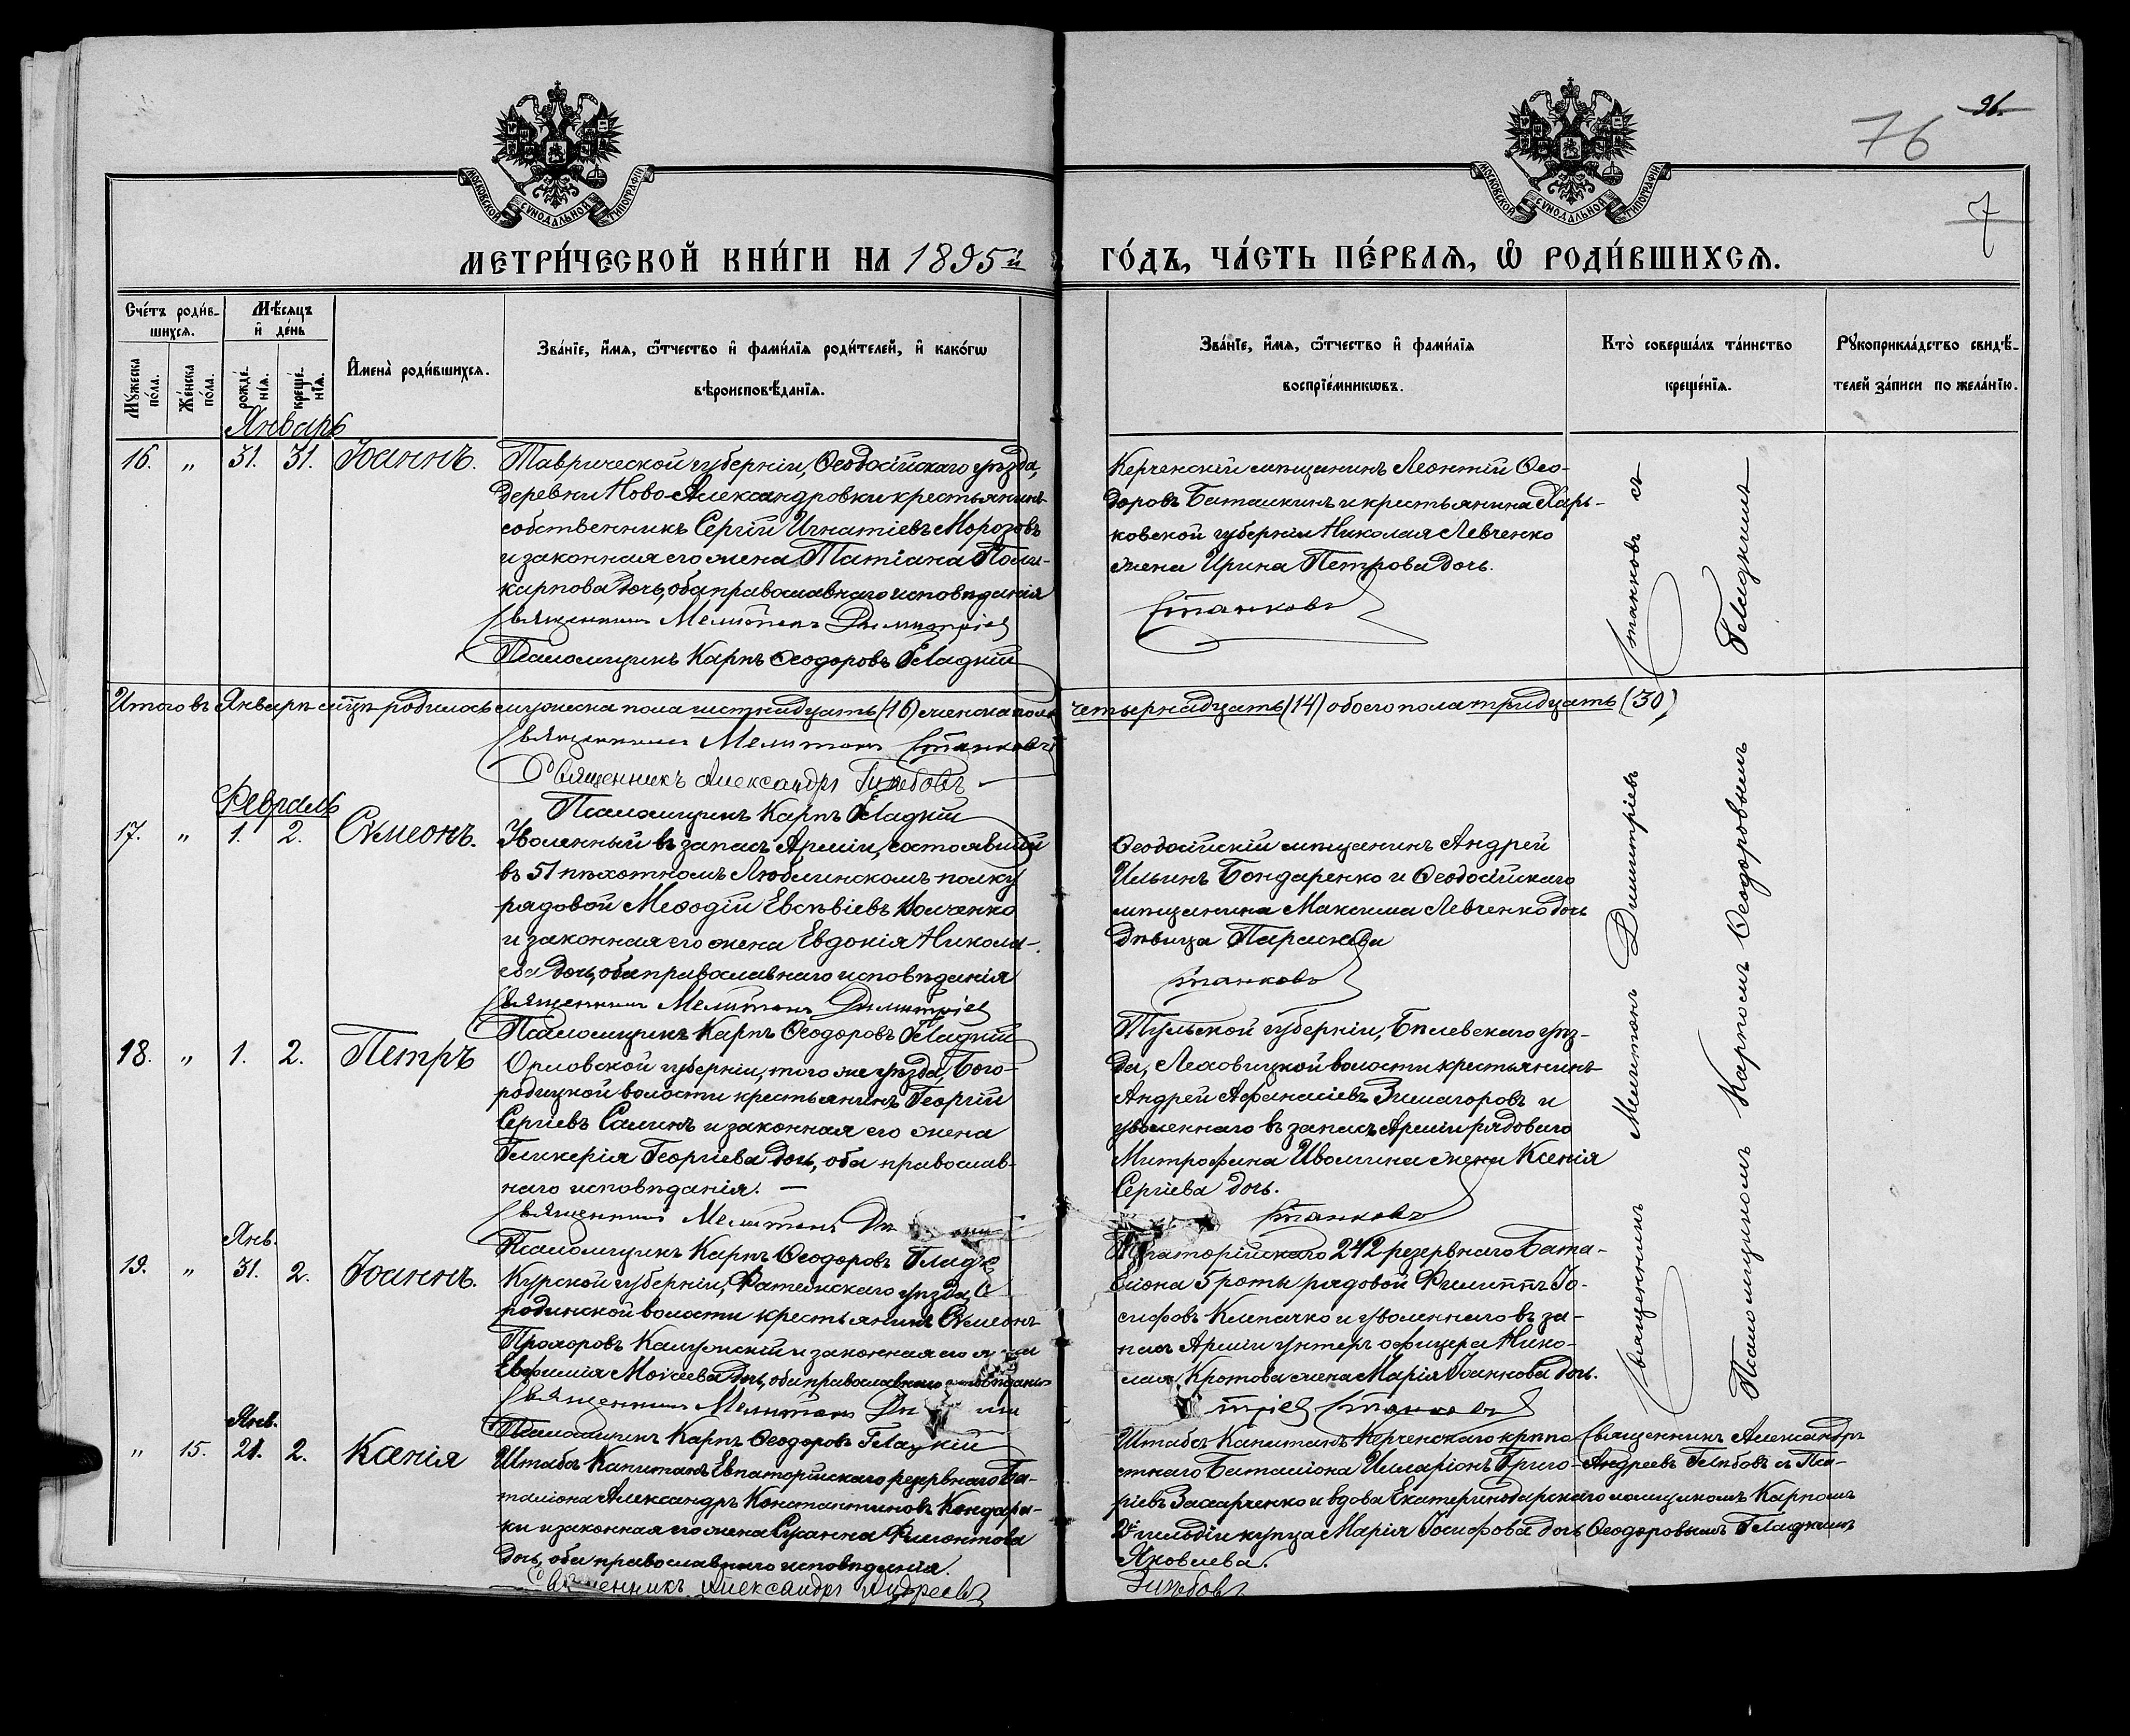 96.
76
7
МОСКОВСКОЙ СѴНОДАЛЬНОЙ ТИПОГРАФІИ
МОСКОВСКОЙ СѴНОДАЛЬНОЙ ТИПОГРАФІИ
МЕТРИ́ЧЕСКОЙ КНИ́ГИ НА 1895й
ГО́ДЪ, ЧА́СТЬ ПЕ́РВАѦ, Ѡ҆ РОДИ́ВШИХСѦ.
Сче́тъ роди́в-
шихсѧ.
Мꙋ́жеска по́ла.
Же́нска по́ла.
Мѣ́сѧцъ
и҆ де́нь
рожде́-
нїѧ.
креще́-
нїѧ.
И҆мена̀ роди́вшихсѧ.
Зва́нїе, и҆́мѧ, ѻ҆́тчество и҆ фами́лїѧ роди́телей, и҆ како́гѡ
вѣроисповѣ́данїѧ.
Зва́нїе, и҆́мѧ, ѻ҆́тчество и҆ фами́лїѧ
воспрїе́мникѡвъ.
Кто̀ соверша́лъ та́инство
креще́нїѧ.
Рꙋкоприкла́дство свидѣ́-
телей за́писи по жела́нїю.
Январь
16. „ 31. 31. Іоаннъ.
Таврической губерніи, Ѳеодосійскаго уѣзда,
деревни Ново-Александровки крестьянинъ
собственникъ Сергій Игнатіевъ Морозовъ
и законная его жена Татіана Поли-
карпова дочь, оба православнаго исповѣданія
Священникъ Мелитонъ Димитріев
Псаломщикъ Карпъ Ѳеодоровъ Гладкій
Керченскій мѣщанинъ Леонтій Ѳео-
доровъ Баташкинъ и крестьянина Харь-
ковской губерніи Николая Левченко
жена Ирина Петрова дочь.
Станковъ
Итого въ Январѣ м-цѣ родилось мужеска пола шестнадцать (16) женска пола четырнадцать (14) обоего пола тридцать (30)
Священникъ Мелитонъ Станковъ
Священникъ Александръ Глѣбовъ
Псаломщикъ Карпъ Гладкій
Февраль
17. „ 1. 2. Сѵмеонъ.
Уволенный въ запасъ Арміи, состоявшій
въ 51 пѣхотномъ Люблинскомъ полку
рядовой Меѳодій Евсѣвіевъ
и законная его жена Евдокія Никола-
ева дочь, оба православнаго исповѣданія
Священникъ Мелитонъ Димитріев
Псаломщикъ Карпъ Ѳеодоровъ Гладкій
Ѳеодосійскій мѣщанинъ Андрей
Ильинъ Бондаренко и Ѳеодосійскаго
мѣщанина Максима Левченко дочь
дѣвица Параскева
Станковъ
18. „ 1. 2. Петръ
Орловской губерніи, того же уѣзда, Бого-
родицкой волости крестьянинъ Георгій
Сергіевъ Салинъ и законная его жена
Гликерія Георгіева дочь, оба православ-
наго исповѣданія. —
Священникъ Мелитонъ
Псаломщикъ Карпъ Ѳеодоровъ
Тульской губерніи, Бѣлевскаго уѣз-
да, волости крестьянинъ
Андрей Аѳанасіевъ Зимагоровъ и
уволеннаго въ запасъ Арміи рядового
Митрофана Иволгина жена Ксенія
Сергіева дочь.
Станковъ
Янв.
19. „ 31. 2. Іоаннъ.
Курской губерніи, Фатежскаго уѣзда,
родинской волости крестьянинъ Сѵмеонъ
Прохоровъ Калужскій и законная его
Евфимія Моисеева дочь, оба православнаго
Священникъ Мелитонъ
Псаломщикъ Карпъ Ѳеодоровъ Гладкій
Евпаторійскаго 242 резервнаго Бата-
ліона 5 роты рядовой Филиппъ Іо-
сифовъ Клепачко и уволеннаго въ за-
пасъ Арміи унтеръ офицера Нико-
лая Кротова жена Марія Іоаннова дочь.
тріев Станковъ
Священникъ Мелитонъ Димитріевъ Станковъ съ
Псаломщикомъ Карпомъ Ѳеодоровымъ Гладкимъ
Янв.
„ 15. 21. 2. Ксенія
Штабсъ Капитанъ Евпаторійскаго резервнаго Ба-
таліона Александръ Константиновъ Кондара-
ки и законная его жена Сусанна Филоктова
дочь, оба православнаго исповѣданія.
Священникъ Александръ Андреев
Штабсъ Капитанъ Керченскаго крѣпо-
стнаго Баталіона Илларіонъ Григо-
ріевъ Захарченко и вдова Екатеринодарскаго
2й гильдіи купца Марія Іосифова дочь
Яковлева.
Глѣбовъ
Священникъ Александръ
Андреевъ Глѣбовъ съ Пса-
ломщикомъ Карпомъ
Ѳеодоровымъ Гладкимъ